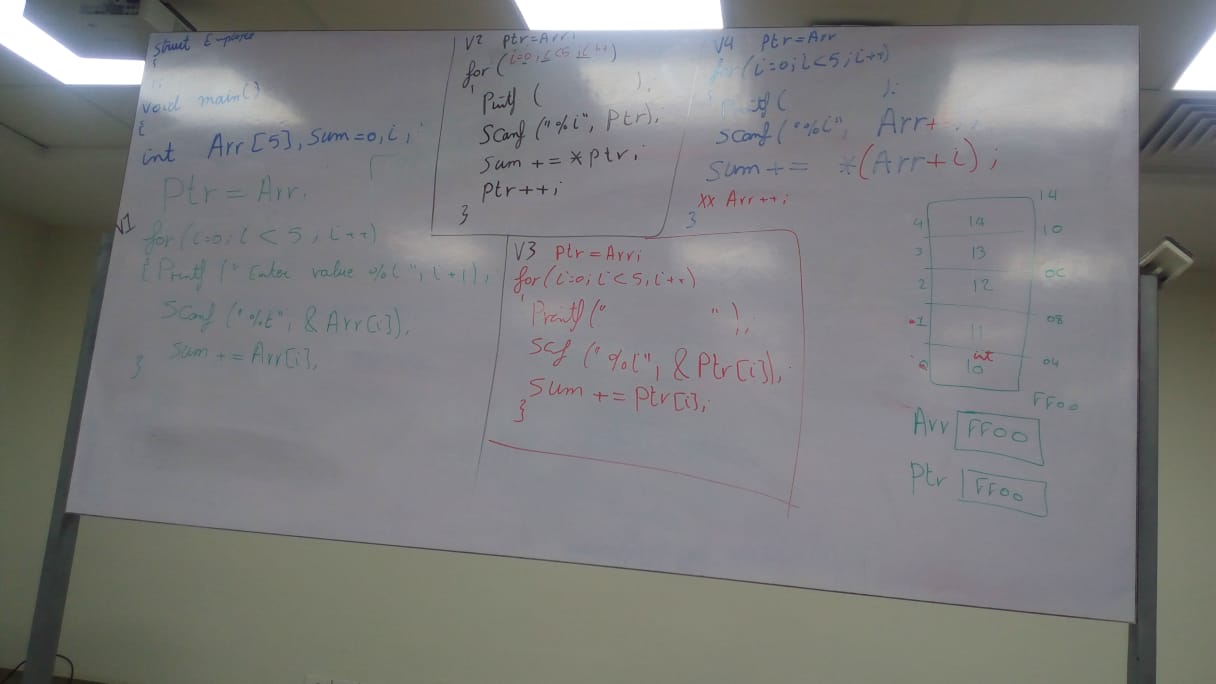 Struct Employee
{
};
void main()
{
int Arr[5], Sum=0, i;
Ptr = Arr;
V1
for(i=0; i<5; i++)
{ Printf ("Enter value %i", i+1);
Scanf ("%i", &Arr[i]);
Sum += Arr[i];
}
V2 Ptr=Arr;
for(i=0; i<5; i++)
Printf ( );
Scanf ("%i", Ptr);
Sum += *Ptr;
Ptr++;
}
V3 Ptr=Arr;
for(i=0; i<5; i++)
Printf (" ");
Scf ("%i", &Ptr[i]);
Sum += Ptr[i];
}
V4 Ptr=Arr
for(i=0; i<5; i++)
{ Printf ( );
Scanf ("%i", Arr+
Sum += *(Arr+i);
xx Arr++;
}
14
4 14
10
3 13
0C
2 12
08
1 11
int
04
0 10
FF00
Arr FF00
Ptr FF00